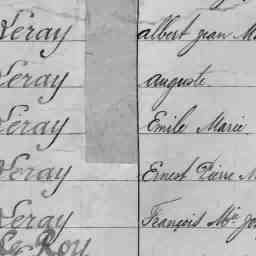 Leray albert jean M
Leray auguste
Leray Emile Marie
Leray Ernest Pierre M
Leray François Mie Jo
Le Roy